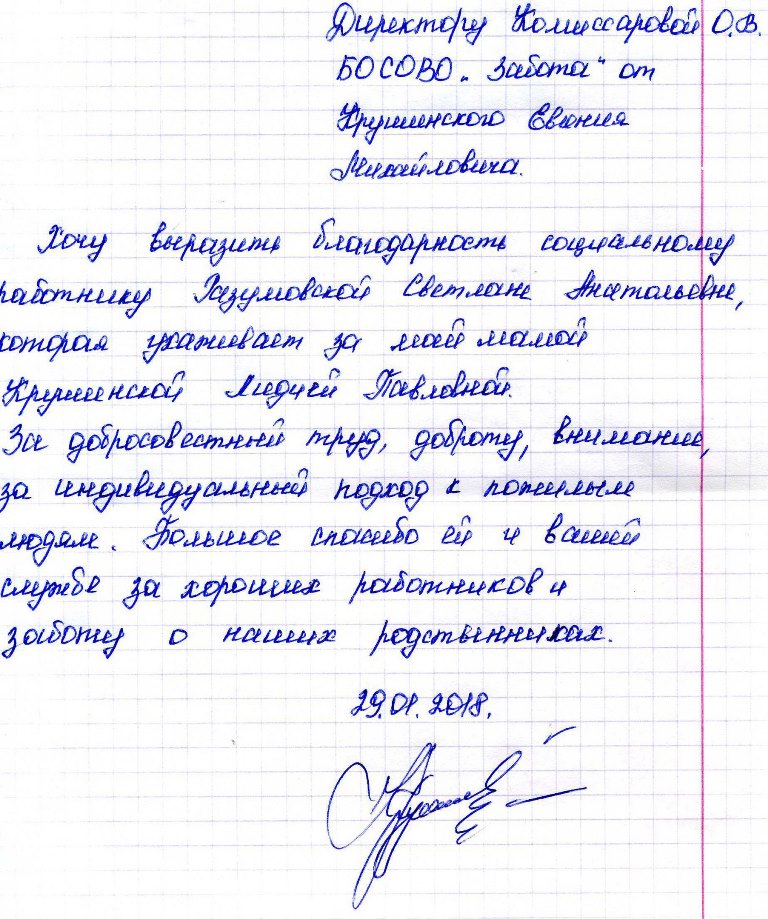 Директору Комиссаровой О.В.
БОСОВО „Забота" от
Крушинского Евгения
Михайловича.
Хочу выразить благодарность социальному
работнику Разумовской Светлане Анатольевне,
которая ухаживает за моей мамой
Крушинской Лидией Павловной.
За добросовестный труд, доброту, внимание,
за индивидуальный подход к пожилым
людям. Большое спасибо ей и вашей
службе за хороших работников и
заботу о наших родственниках.
29.01.2018.